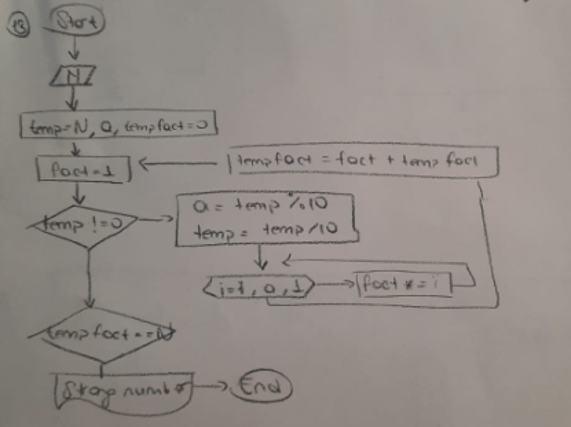 13
Start
N
temp=N, a, tempfact=0
fact=1
tempfact = fact + temp fact
temp !=0
a = temp %10
temp = temp/10
i=1, a, 1
fact *= i
tempfact==N
Strong number
End